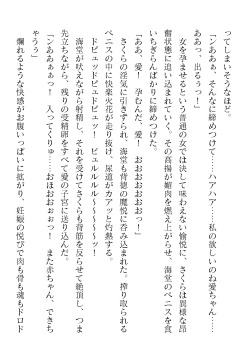 ってしまいそうなほど。
「ンああぁ、そんなに締めつけて……ハアハア……私の欲しいのね愛ちゃん……
ああっ、出るぅっ！」
女を孕ませるという普通の女では決して味わえない愉悦に、さくらは異様な昂
奮状態に追い込まれていく。その高揚が媚肉を燃え上がらせ、海堂のペニスを食
いちぎらんばかりに締めつけた。
「ああ、愛！　孕むんだ、愛！　おおおおおおぉっ！」
さくらの淫気に引きずられ、海堂も背徳の魔悦に呑み込まれた。搾り取られる
ペニスの中に快楽火花が走り抜け、尿道がカアッと灼熱する。
ドピュッドピュドピュッ！　ビュルルルル～～～～ッ！
海堂が吠えながら射精し、それを受けてさくらも背筋を反らせて絶頂し、つま
先立ちながら、残りの受精卵をすべて愛の子宮に送り込んだ。
「ンああぁぁっ！　入ってくりゅ……おほおおぉぉっ！　また赤ちゃん、できち
ゃうぅ」
爛れるような快感がお腹いっぱいに拡がり、妊娠の悦びで肉も骨も魂もドロド